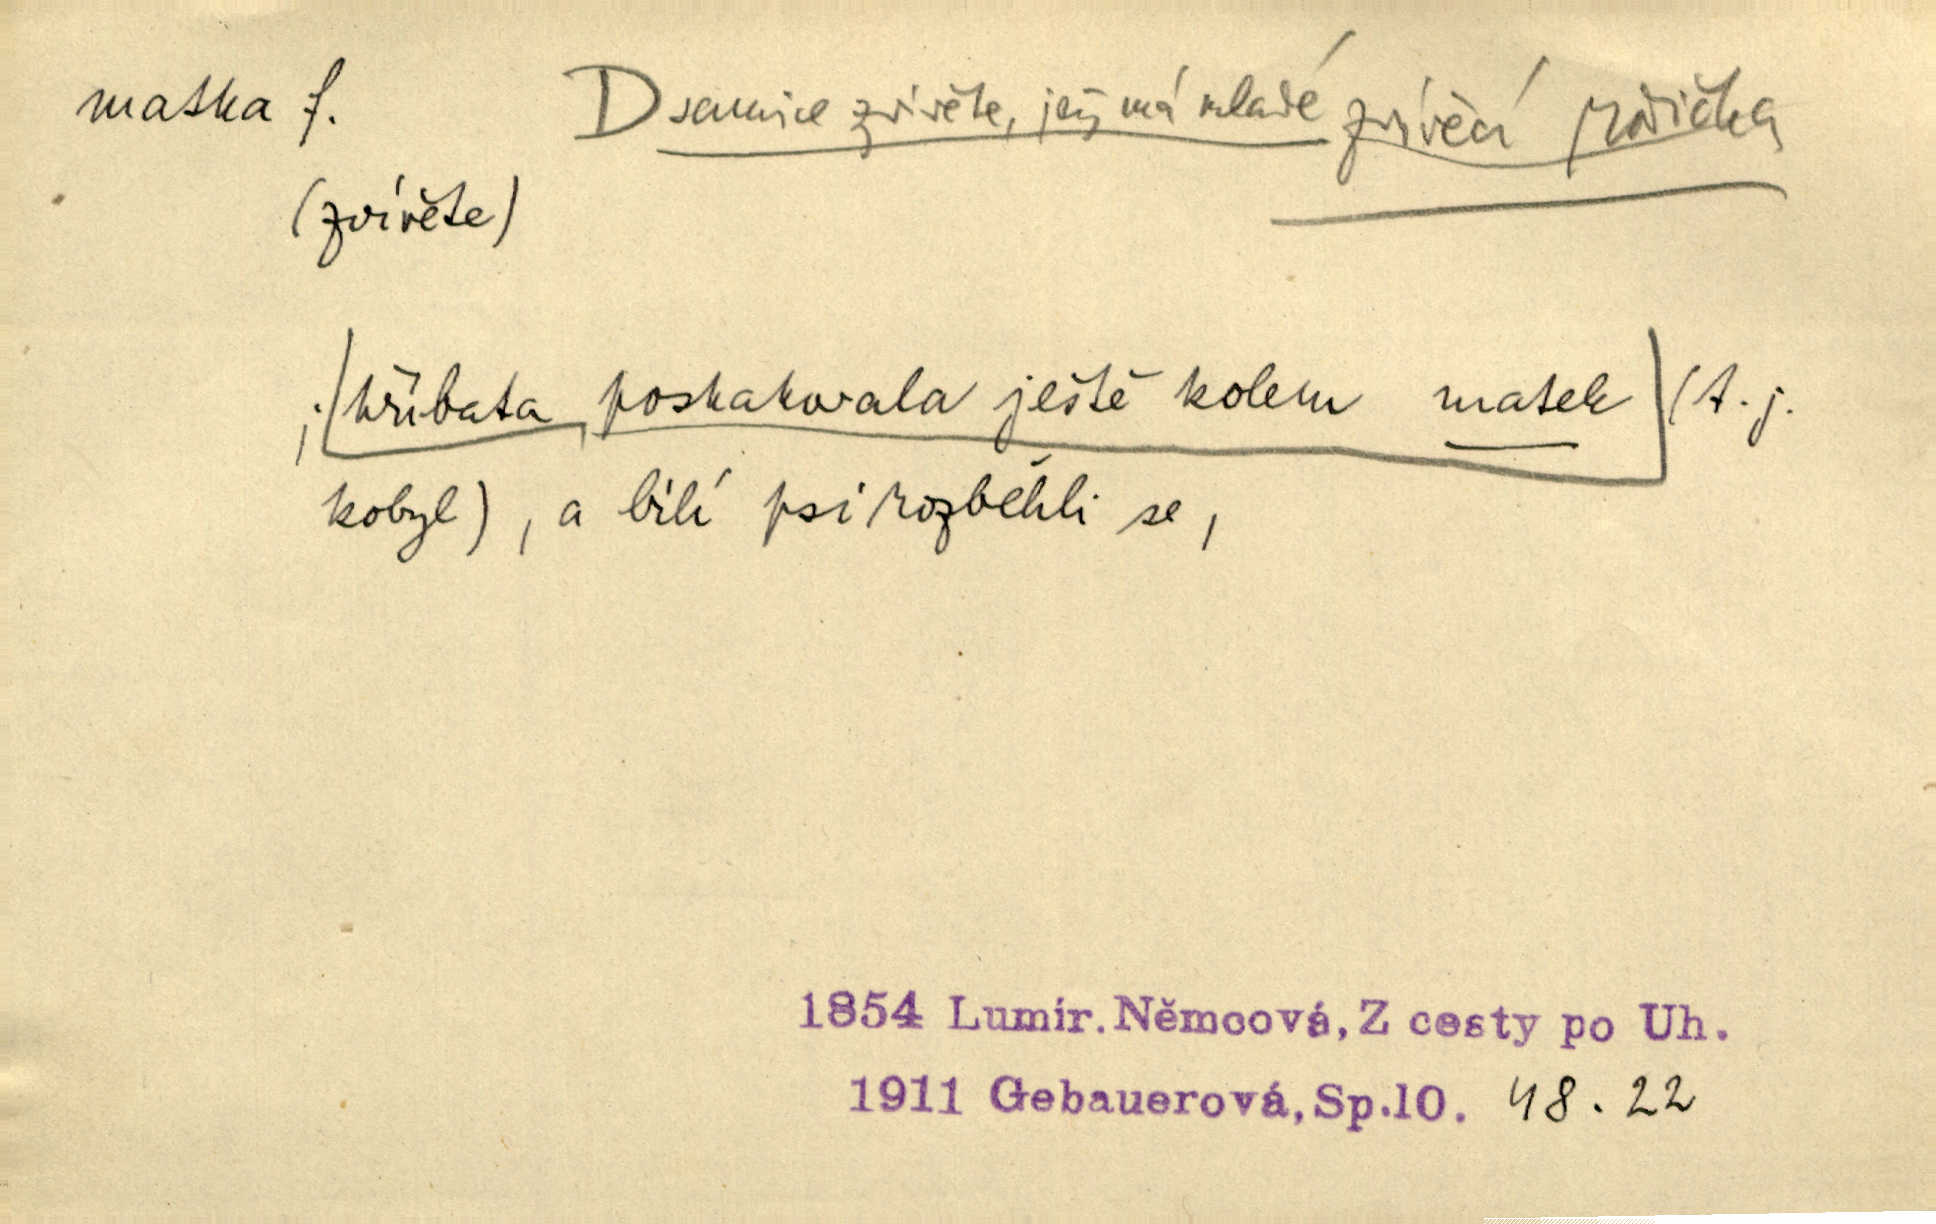 matka f. D samice zvířete, jež má mladé zvířecí rodička
(zvířete)
; hříbata poskakovala ještě kolem matek (t. j.
kobyl), a bílí psi rozběhli se,
1854 Lumír. Němcová, Z cesty po Uh.
1911 Gebauerová, Sp.10. 48. 22